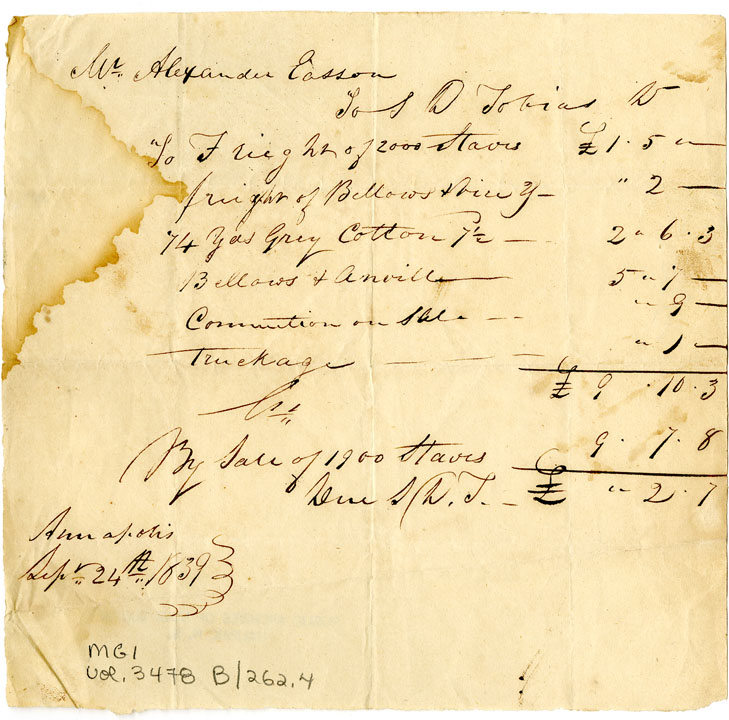 Mr. Alexander Easson
To S D Tobias Dr
To Frieght of 2000 Staves £1 . 5 " —
freight of Bellows & vice " 2 —
74 Yds Grey Cotton 7½ — 2 " 6 . 3
Bellows & Anville — 5 " 7 —
Commution on Sale -- " 9 —
Truckage — — — " 1 —
£ 9 . 10 . 3
Cr.
By Sale of 1900 Staves 9 . 7 . 8
Due S. D. T. — £ " 2 . 7
Annapolis
Sepr. 24th 1839
MG1
Vol. 3478 B/262.4